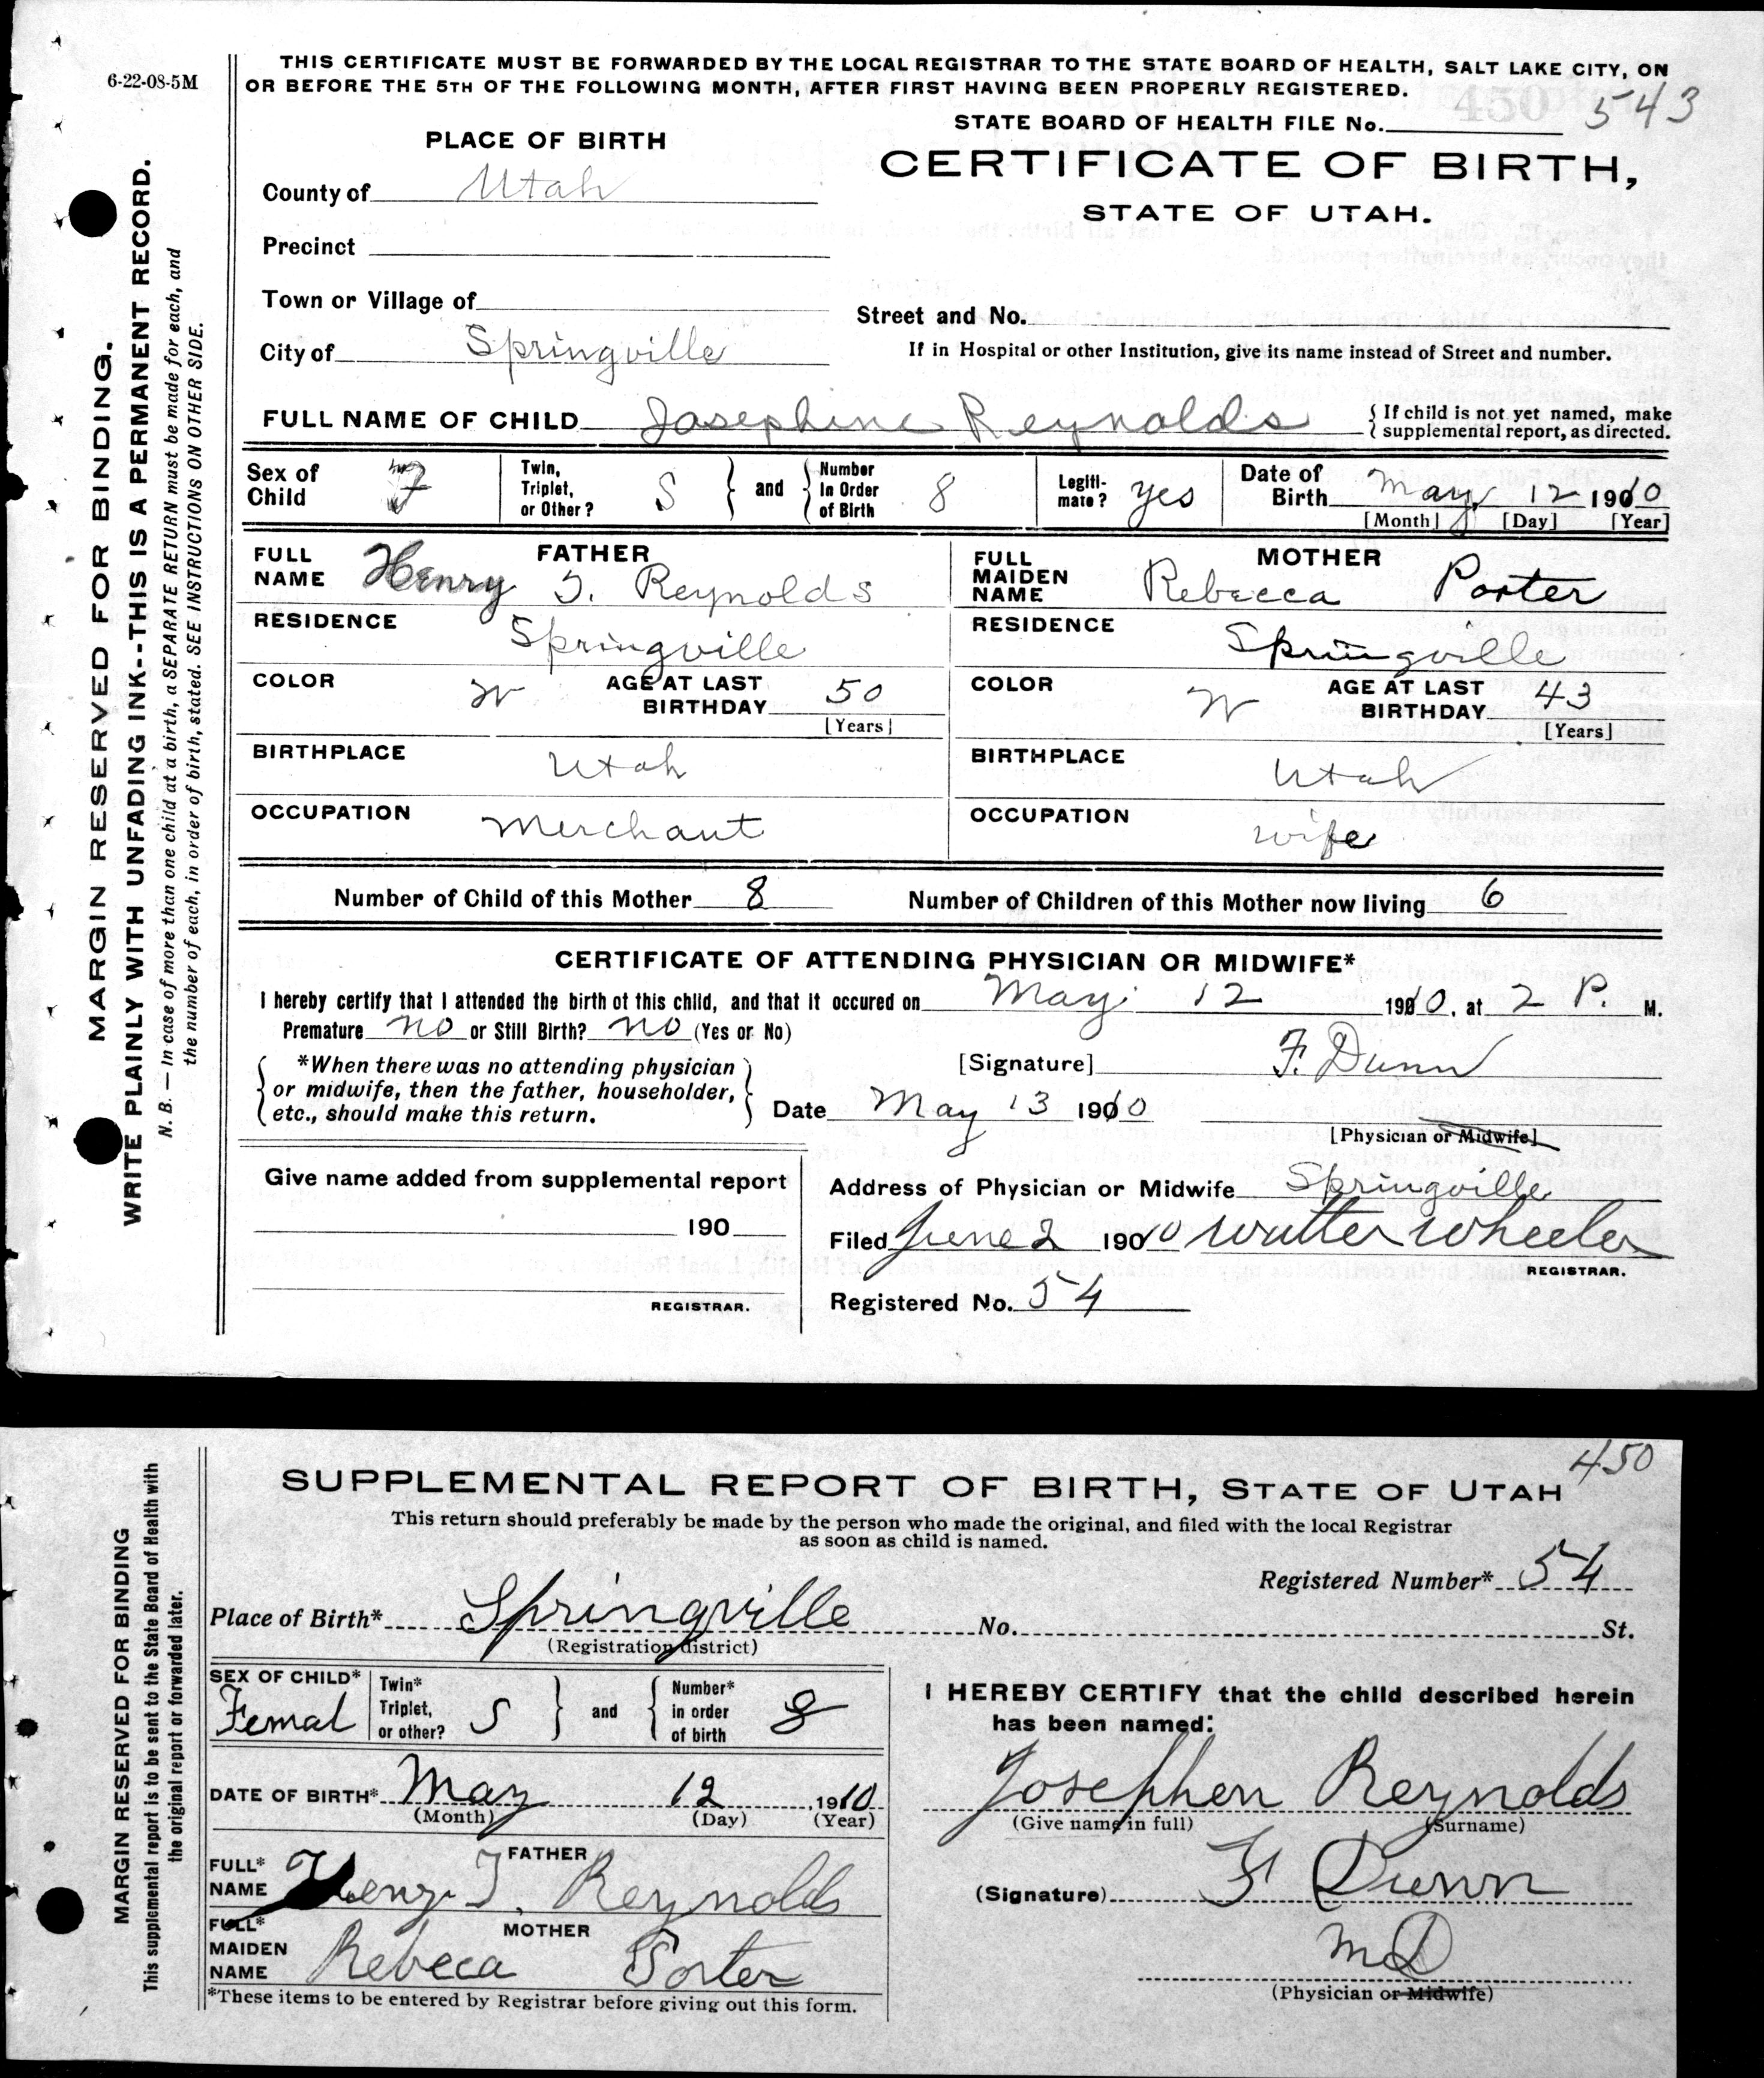 6-22-08-5M
THIS CERTIFICATE MUST BE FORWARDED BY THE LOCAL REGISTRAR TO THE STATE BOARD OF HEALTH, SALT LAKE CITY, ON
OR BEFORE THE 5TH OF THE FOLLOWING MONTH, AFTER FIRST HAVING BEEN PROPERLY REGISTERED.
450 543
STATE BOARD OF HEALTH FILE No.
PLACE OF BIRTH
CERTIFICATE OF BIRTH,
STATE OF UTAH.
County of Utah
Precinct
Town or Village of
Street and No.
City of Springville
If in Hospital or other Institution, give its name instead of Street and number.
FULL NAME OF CHILD Josephine Reynolds { If child is not yet named, make
{ supplemental report, as directed.
Sex of Child F
Twin, Triplet, or Other? S } and { Number In Order of Birth 8
Legiti-mate? yes
Date of Birth May 12 1910
[Month] [Day] [Year]
FATHER
FULL NAME Henry T. Reynolds
RESIDENCE Springville
COLOR W AGE AT LAST BIRTHDAY 50
[Years]
BIRTHPLACE Utah
OCCUPATION Merchant
MOTHER
FULL MAIDEN NAME Rebecca Porter
RESIDENCE Springville
COLOR W AGE AT LAST BIRTHDAY 43
[Years]
BIRTHPLACE Utah
OCCUPATION wife
Number of Child of this Mother 8 Number of Children of this Mother now living 6
CERTIFICATE OF ATTENDING PHYSICIAN OR MIDWIFE*
I hereby certify that I attended the birth of this child, and that it occured on May 12 1910, at 2 P. M.
Premature no or Still Birth? no (Yes or No)
*When there was no attending physician
or midwife, then the father, householder,
etc., should make this return.
[Signature] F. Dunn
Date May 13 1910
[Physician or Midwife]
Give name added from supplemental report
190
REGISTRAR.
Address of Physician or Midwife Springville
Filed June 2 1910 Walter Wheeler
REGISTRAR.
Registered No. 54
MARGIN RESERVED FOR BINDING.
WRITE PLAINLY WITH UNFADING INK--THIS IS A PERMANENT RECORD.
N. B. — In case of more than one child at a birth, a SEPARATE RETURN must be made for each, and
the number of each, in order of birth, stated. SEE INSTRUCTIONS ON OTHER SIDE.
450
SUPPLEMENTAL REPORT OF BIRTH, STATE OF UTAH
This return should preferably be made by the person who made the original, and filed with the local Registrar
as soon as child is named.
Registered Number* 54
Place of Birth* Springville No. St.
(Registration district)
SEX OF CHILD* Femal
Twin* Triplet, or other? S } and { Number* in order of birth 8
DATE OF BIRTH* May 12, 1910
(Month) (Day) (Year)
FATHER
FULL* NAME Henry T. Reynolds
MOTHER
FULL* MAIDEN NAME Rebeca Porter
*These items to be entered by Registrar before giving out this form.
I HEREBY CERTIFY that the child described herein
has been named:
Josephen Reynolds
(Give name in full) (Surname)
(Signature) F Dunn
MD
(Physician or Midwife)
MARGIN RESERVED FOR BINDING
This supplemental report is to be sent to the State Board of Health with
the original report or forwarded later.